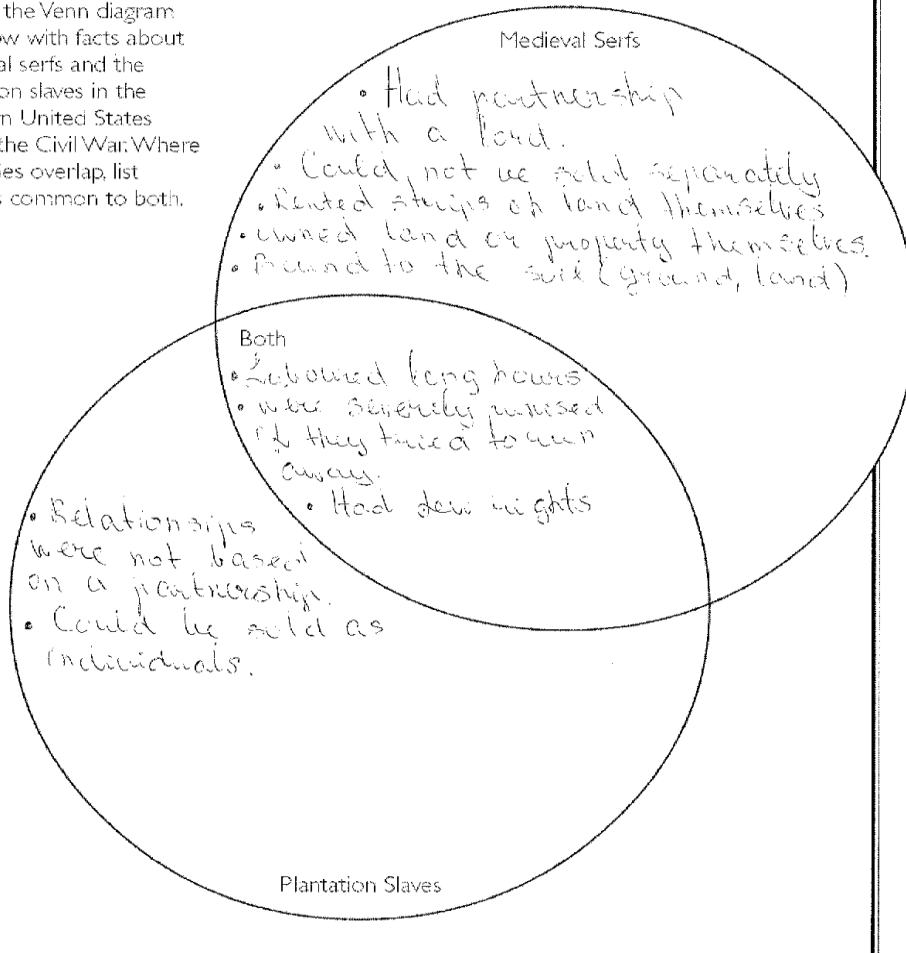 the Venn diagram
ow with facts about
al serfs and the
on slaves in the
n United States
the Civil War. Where
es overlap, list
s common to both.
Medieval Serfs
• Had partnership
with a lord.
• Could not be sold separately
• Rented strips of land themselves
• owned land or property themselves.
• Bound to the soil (ground, land)
Both
• Laboured long hours
• were severely punised
if they tried to run
away.
• Had few rights
• Relationsips
were not based
on a partnership.
• Could be sold as
individuals.
Plantation Slaves